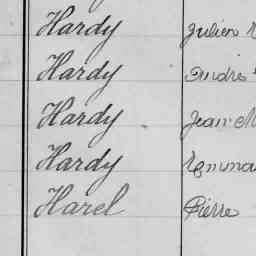 Hardy Julien
Hardy André
Hardy Jean M
Hardy
Harel Pierre